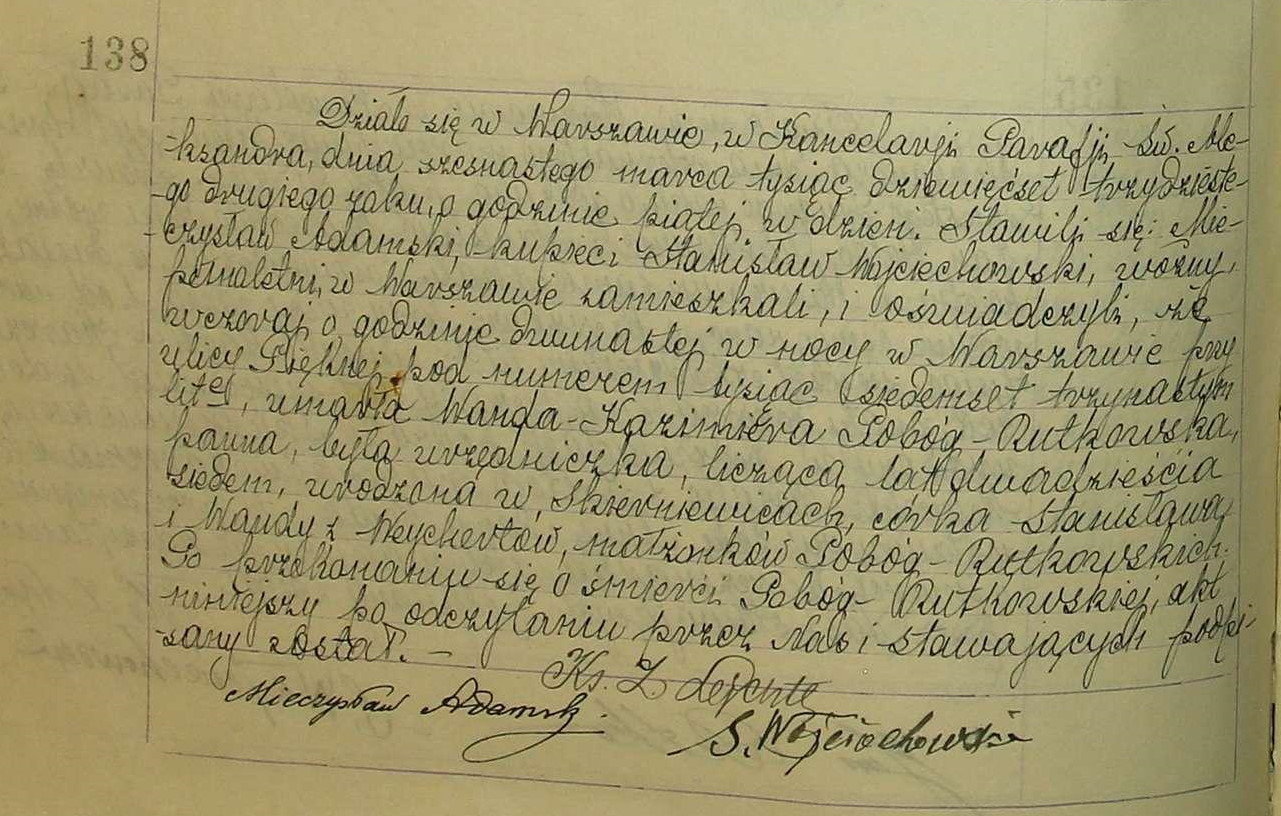 138
Działo się w Warszawie, w Kancelarji Parafji Św. Ale-
-ksandra, dnia szesnastego marca tysiąc dziewięćset trzydzieste-
-go drugiego roku, o godzinie piątej w dzień. Stawili się: Mie-
czysław Adamski, kupiec i Stanisław Wojciechowski, woźny,
pełnoletni, w Warszawie zamieszkali, i oświadczyli, że
wczoraj o godzinie dwunastej w nocy w Warszawie przy
ulicy Pięknej pod numerem tysiąc siedemset trzynastym
lit, umarła Wanda-Kazimiera Pobóg-Rutkowska,
panna, była urzędniczka, licząca lat dwadzieścia
siedem, urodzona w Skierniewicach, córka Stanisława
i Wandy z Weychertów, małżonków Pobóg-Rutkowskich.
Po przekonaniu się o śmierci Pobóg-Rutkowskiej, akt
niniejszy po odczytaniu przez Nas i stawających podpi-
-sany został. —
Ks. Z
Mieczysław Adamski
S. Wojciechowski